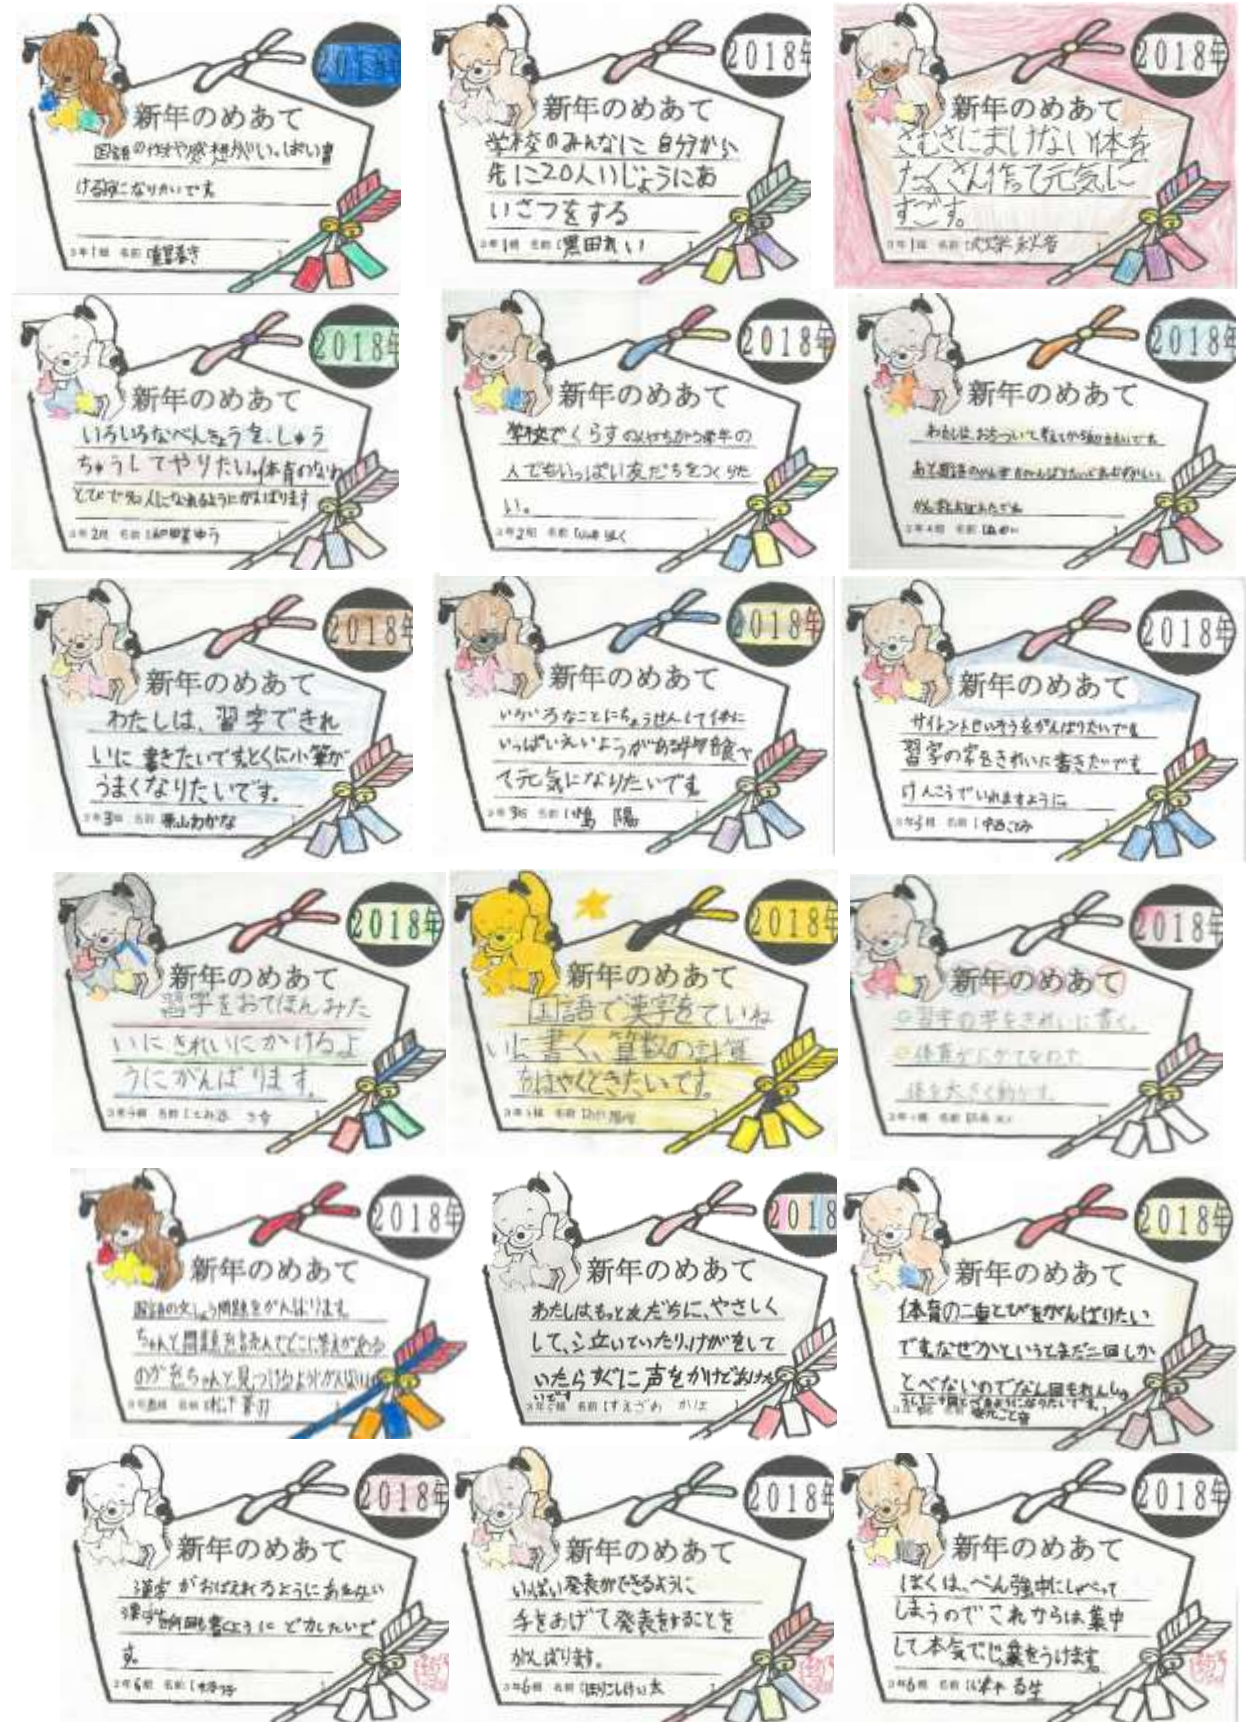 2018年
新年のめあて
国語の作文や感想がいっぱい書
けるようになりたいです
3年1組 名前
2018年
新年のめあて
学校のみんなに自分から
先に20人いじょうにあ
いさつをする
3年1組 名前 黒田れい
2018年
新年のめあて
さむさにまけない体を
たくさん作って元気に
すごす。
3年1組 名前
2018年
新年のめあて
いろいろなべんきょうを、しゅう
ちゅうしてやりたい。体育のなわ
とびで 名人になれるようにがんばります
3年2組 名前 ゆう
2018年
新年のめあて
学校でくらすの人たちがう学年の
人でもいっぱい友だちをつくりた
い。
3年2組 名前
2018年
新年のめあて
わたしは、おちついて考えてから
あと国語のかん字をがんばりたいです
3年4組 名前
2018年
新年のめあて
わたしは、習字できれ
いに書きたいですとくに小筆が
うまくなりたいです。
3年3組 名前 山わかな
2018年
新年のめあて
いろいろなことにちょうせんして体に
いっぱいえいようがある 食べ
て元気になりたいです
3年3組 名前 嶋 陽
2018年
新年のめあて
サイレントせいそうをがんばりたいです
習字の字をきれいに書きたいです
けんこうでいれますように
3年 組 名前 中西ことみ
2018年
新年のめあて
習字をおてほんみた
いにきれいにかけるよ
うにがんばります。
3年 組 名前
2018年
新年のめあて
国語で漢字をていね
いに書く、算数の計算
をはやくときたいです。
3年 組 名前
2018年
新年のめあて
習字の字をきれいに書く。
体育がにがてなので
体を大きく動かす。
3年 組 名前
2018年
新年のめあて
国語の文しょう問題をがんばります。
ちゃんと問題を読んでどこに答えがある
のかをちゃんと見つけるようがんばります
3年 組 名前 松下
2018
新年のめあて
わたしはもっと友だちに、やさしく
して、泣いていたり、けがをして
いたらすぐに声をかけてあげた
いです
3年 組 名前 すえざわ かほ
2018年
新年のめあて
体育の二重とびをがんばりたい
です。なぜかというとまだ二回しか
とべないのでなん回もれんしゅ
3年 組 名前
2018年
新年のめあて
漢字がおぼえれるようにあきらめない
漢字を何回も書くように ど力したいで
す。
3年6組 名前
2018年
新年のめあて
いっぱい発表ができるように
手をあげて発表をすることを
がんばります。
3年6組 名前 ほりこしけい太
2018年
新年のめあて
ぼくは、べん強中にしゃべって
しまうのでこれからは集中
して本気でじゅ業をうけます。
3年6組 名前